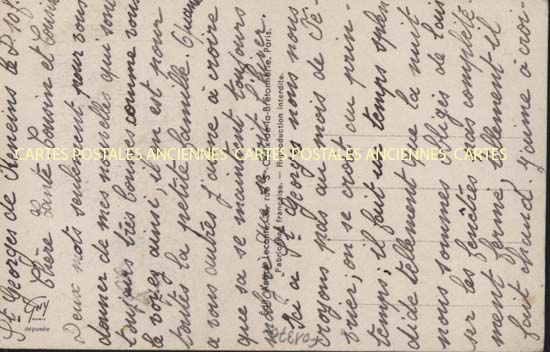 St Georges de Reneins le 2-10f
Chère Tante Cousin et Cousine
Deux mots seulement pour vous
donner de mes nouvelles qui sont
toujours très bonnes comme vous
le voyez ainsi, il en est pour
toutes la petite famille. Quant
a vous autres j'aime à croire
que sa se maintient toujours
Ici a St Georges nous nous
croyons pas au mois de Fé-
vrier, on se croit au prin-
temps; il fait un temps splen
dide tellement que la nuit
nous sommes obligés de lais
ser les fenêtres pas complète-
ment fermé tellement il
fait chaud. J'aime à croi-
CARTES POSTALES ANCIENNES CARTES POSTALES ANCIENNES CARTES POSTALES ANCIENNES
rue Ste-Croix-de-la-Bretonnerie, Paris.
Fabrication française. — Reproduction interdite.
GNY
deposée